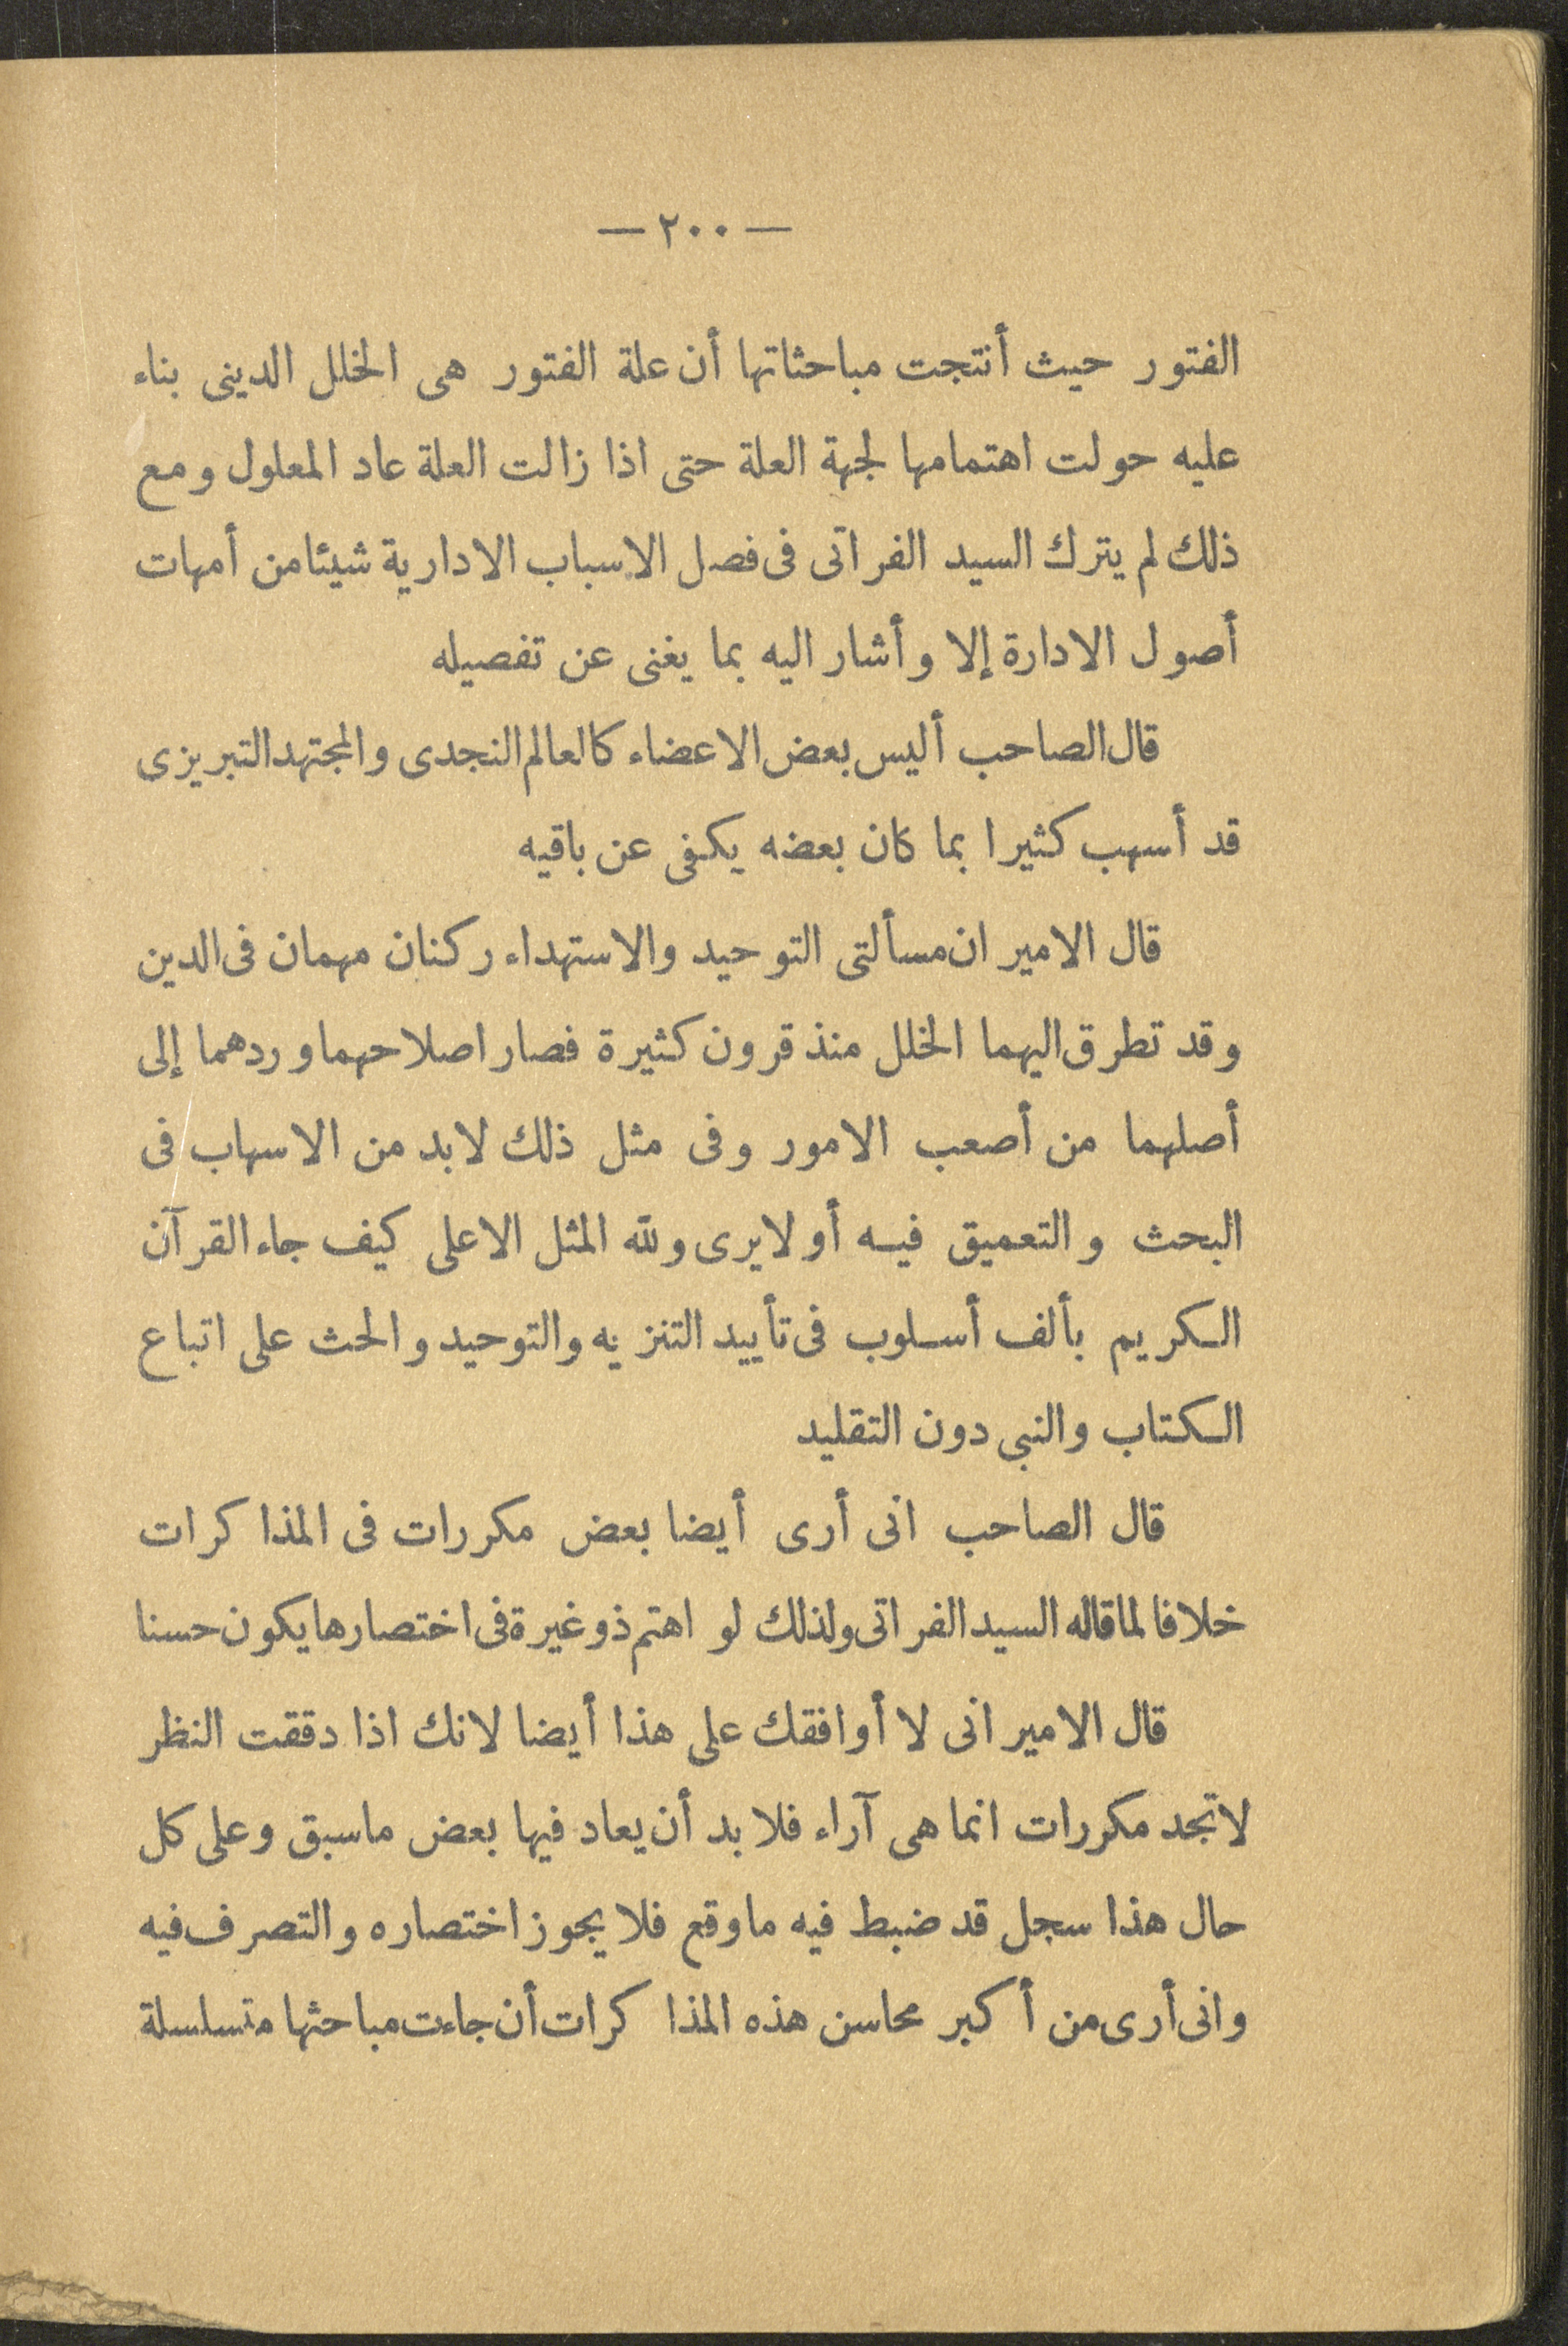 — ٢٠٠ —
الفتور حيث أنتجت مباحثاتها أن علة الفتور هى الخلل الدينى بناء
عليه حولت اهتمامها لجهة العلة حتى اذا زالت العلة عاد المعلول ومع
ذلك لم يترك السيد الفراتى فى فصل الاسباب الادارية شيئا من أمهات
أصول الادارة إلا وأشار اليه بما يغنى عن تفصيله
قال الصاحب أليس بعض الاعضاء كالعالم النجدى والمجتهد التبريزى
قد أسهب كثيرا بما كان بعضه يكفى عن باقيه
قال الامير ان مسألتى التوحيد والاستهداء ركنان مهمان فى الدين
وقد تطرق اليهما الخلل منذ قرون كثيرة فصار اصلاحهما وردهما إلى
أصلهما من أصعب الامور وفى مثل ذلك لا بد من الاسهاب فى
البحث والتعميق فيه أو لا يرى ولله المثل الاعلى كيف جاء القرآن
الكريم بألف أسلوب فى تأييد التنزيه والتوحيد والحث على اتباع
الكتاب والنبى دون التقليد
قال الصاحب انى أرى أيضا بعض مكررات فى المذاكرات
خلافا لما قاله السيد الفراتى ولذلك لو اهتم ذو غيرة فى اختصارها يكون حسنا
قال الامير انى لا أوافقك على هذا أيضا لانك اذا دققت النظر
لا تجد مكررات انما هى آراء فلا بد أن يعاد فيها بعض ما سبق وعلى كل
حال هذا سجل قد ضبط فيه ما وقع فلا يجوز اختصاره والتصرف فيه
وانى أرى من أكبر محاسن هذه المذاكرات أن جاءت مباحثها متسلسلة